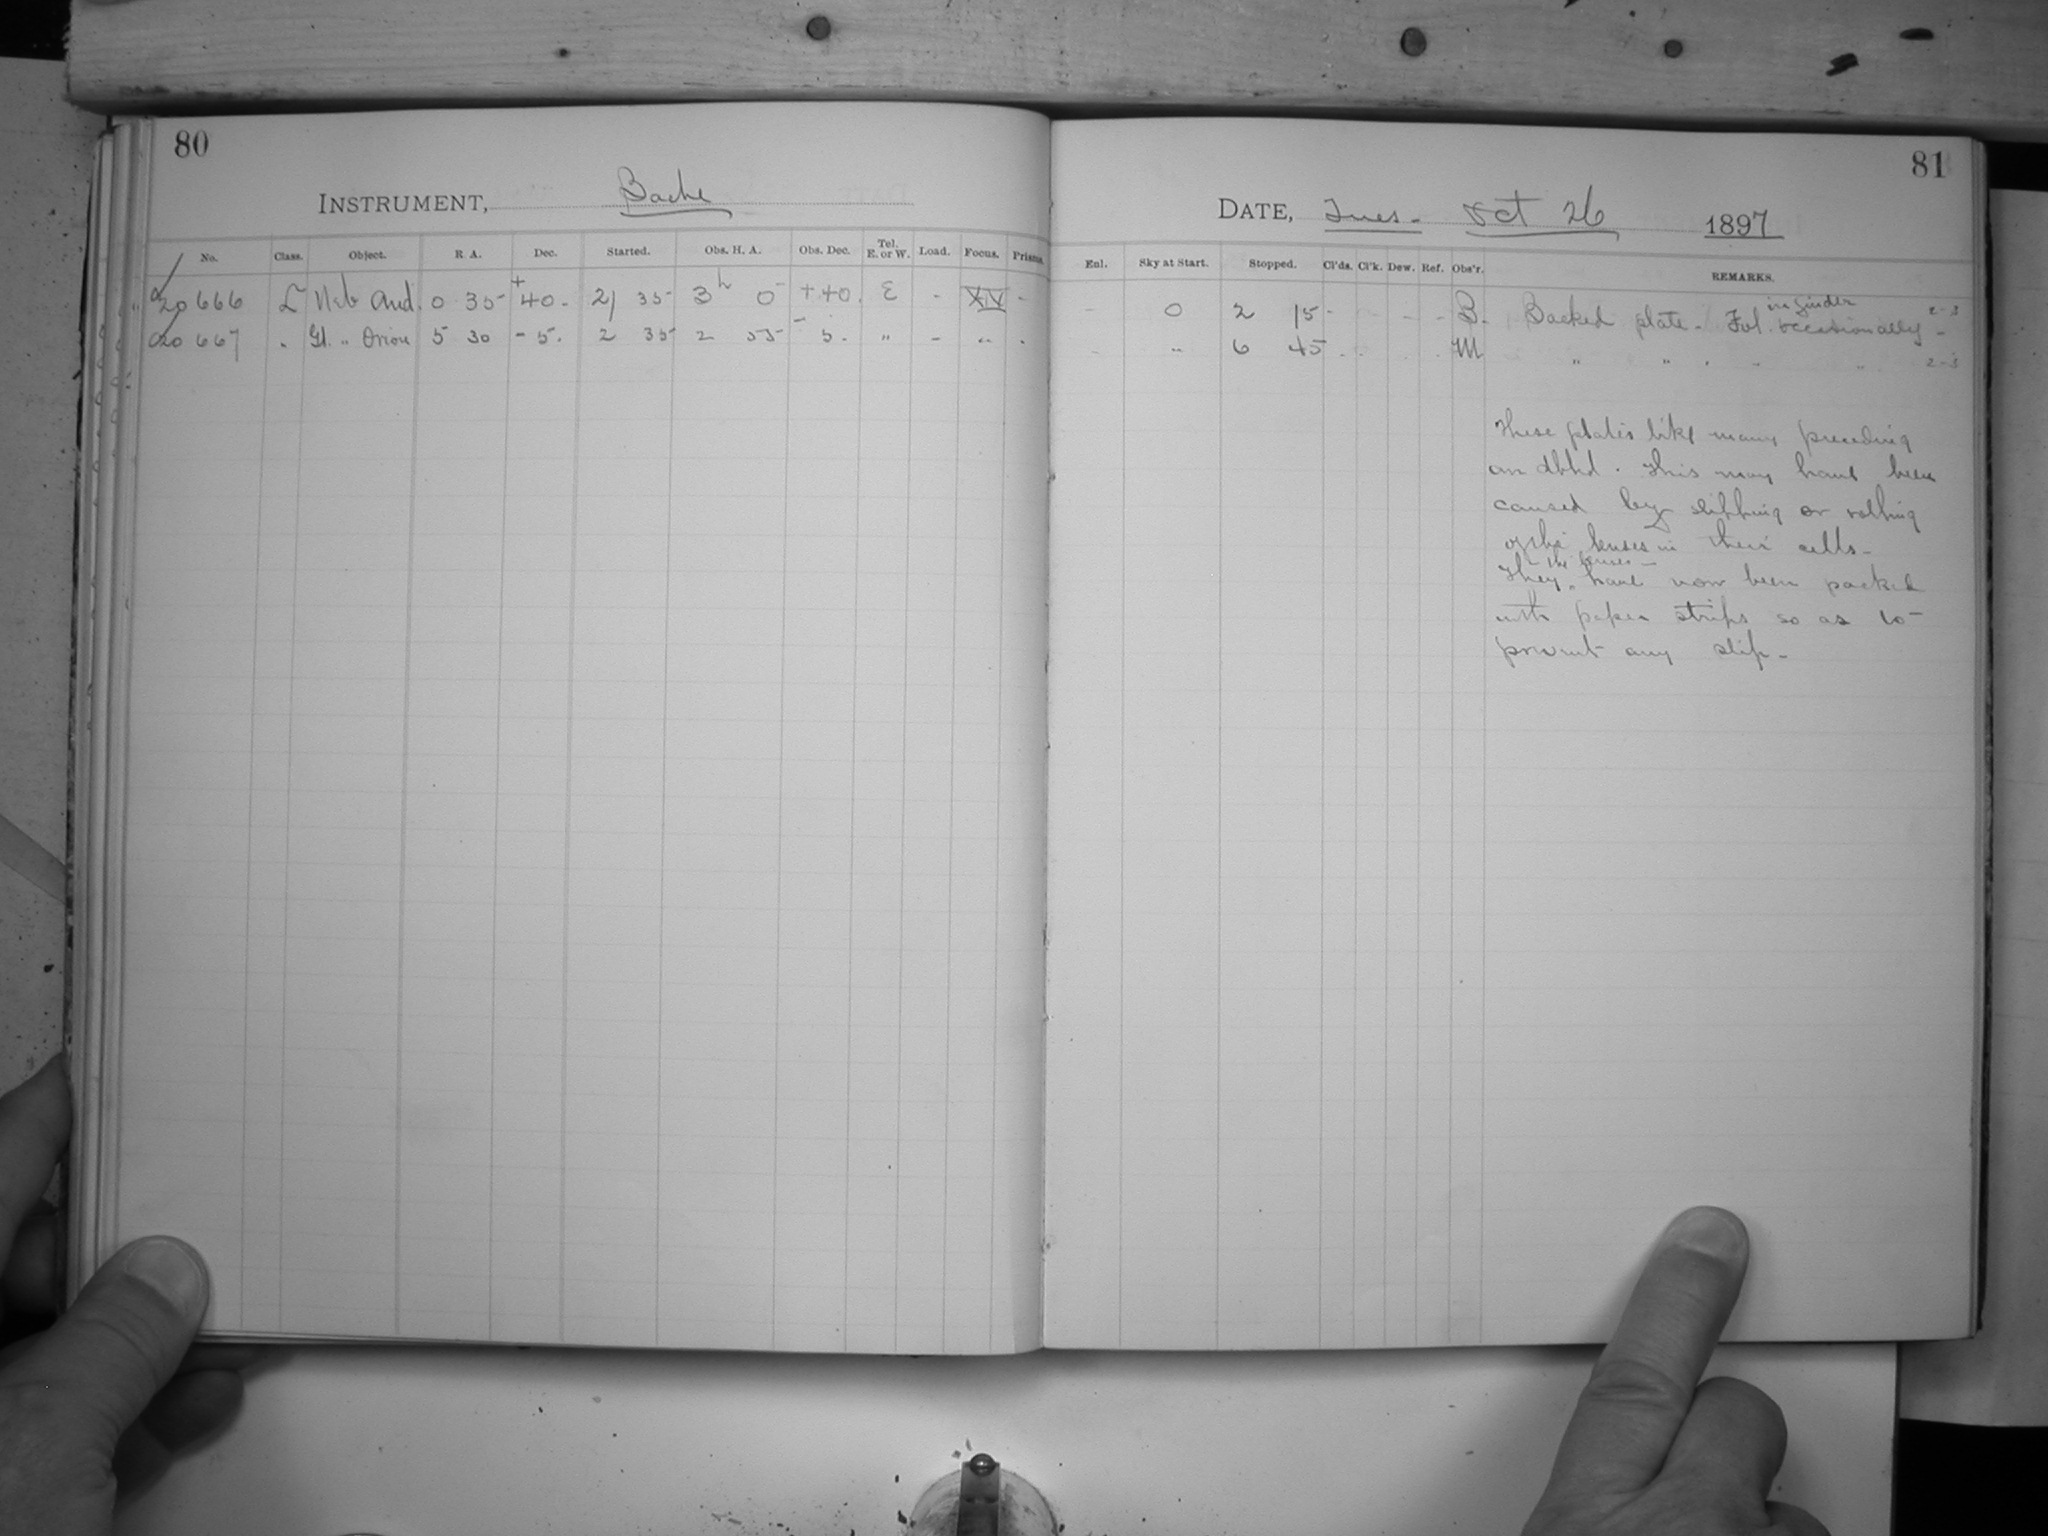 80
INSTRUMENT, Bache
No. Class. Object. R A. Dec. Started. Obs. H. A. Obs. Dec. Tel. E. or W. Load. Focus. Prisms.
20666 L Neb And. 0 35 +40. 21 35 3h 0 +40. E - XIV -
20667 " Gt. " Orion 5 30 -5. 2 35 2 55 -5. " - " -
81
DATE, Tues. Oct 26 1897
Enl. Sky at Start. Stopped. Cl'ds. Cl'k. Dew. Ref. Obs'r. REMARKS.
- 0 2 15 - - - - B. Backed plate. Fol. in finder occasionally - 2-3
- " 6 45 - - - - M " " " " " 2-3
These plates like many preceding
are dbld. This may have been
caused by slipping or rolling
of the lenses in their cells-
They - the lenses - have now been packed
with paper strips so as to
prevent any slip-